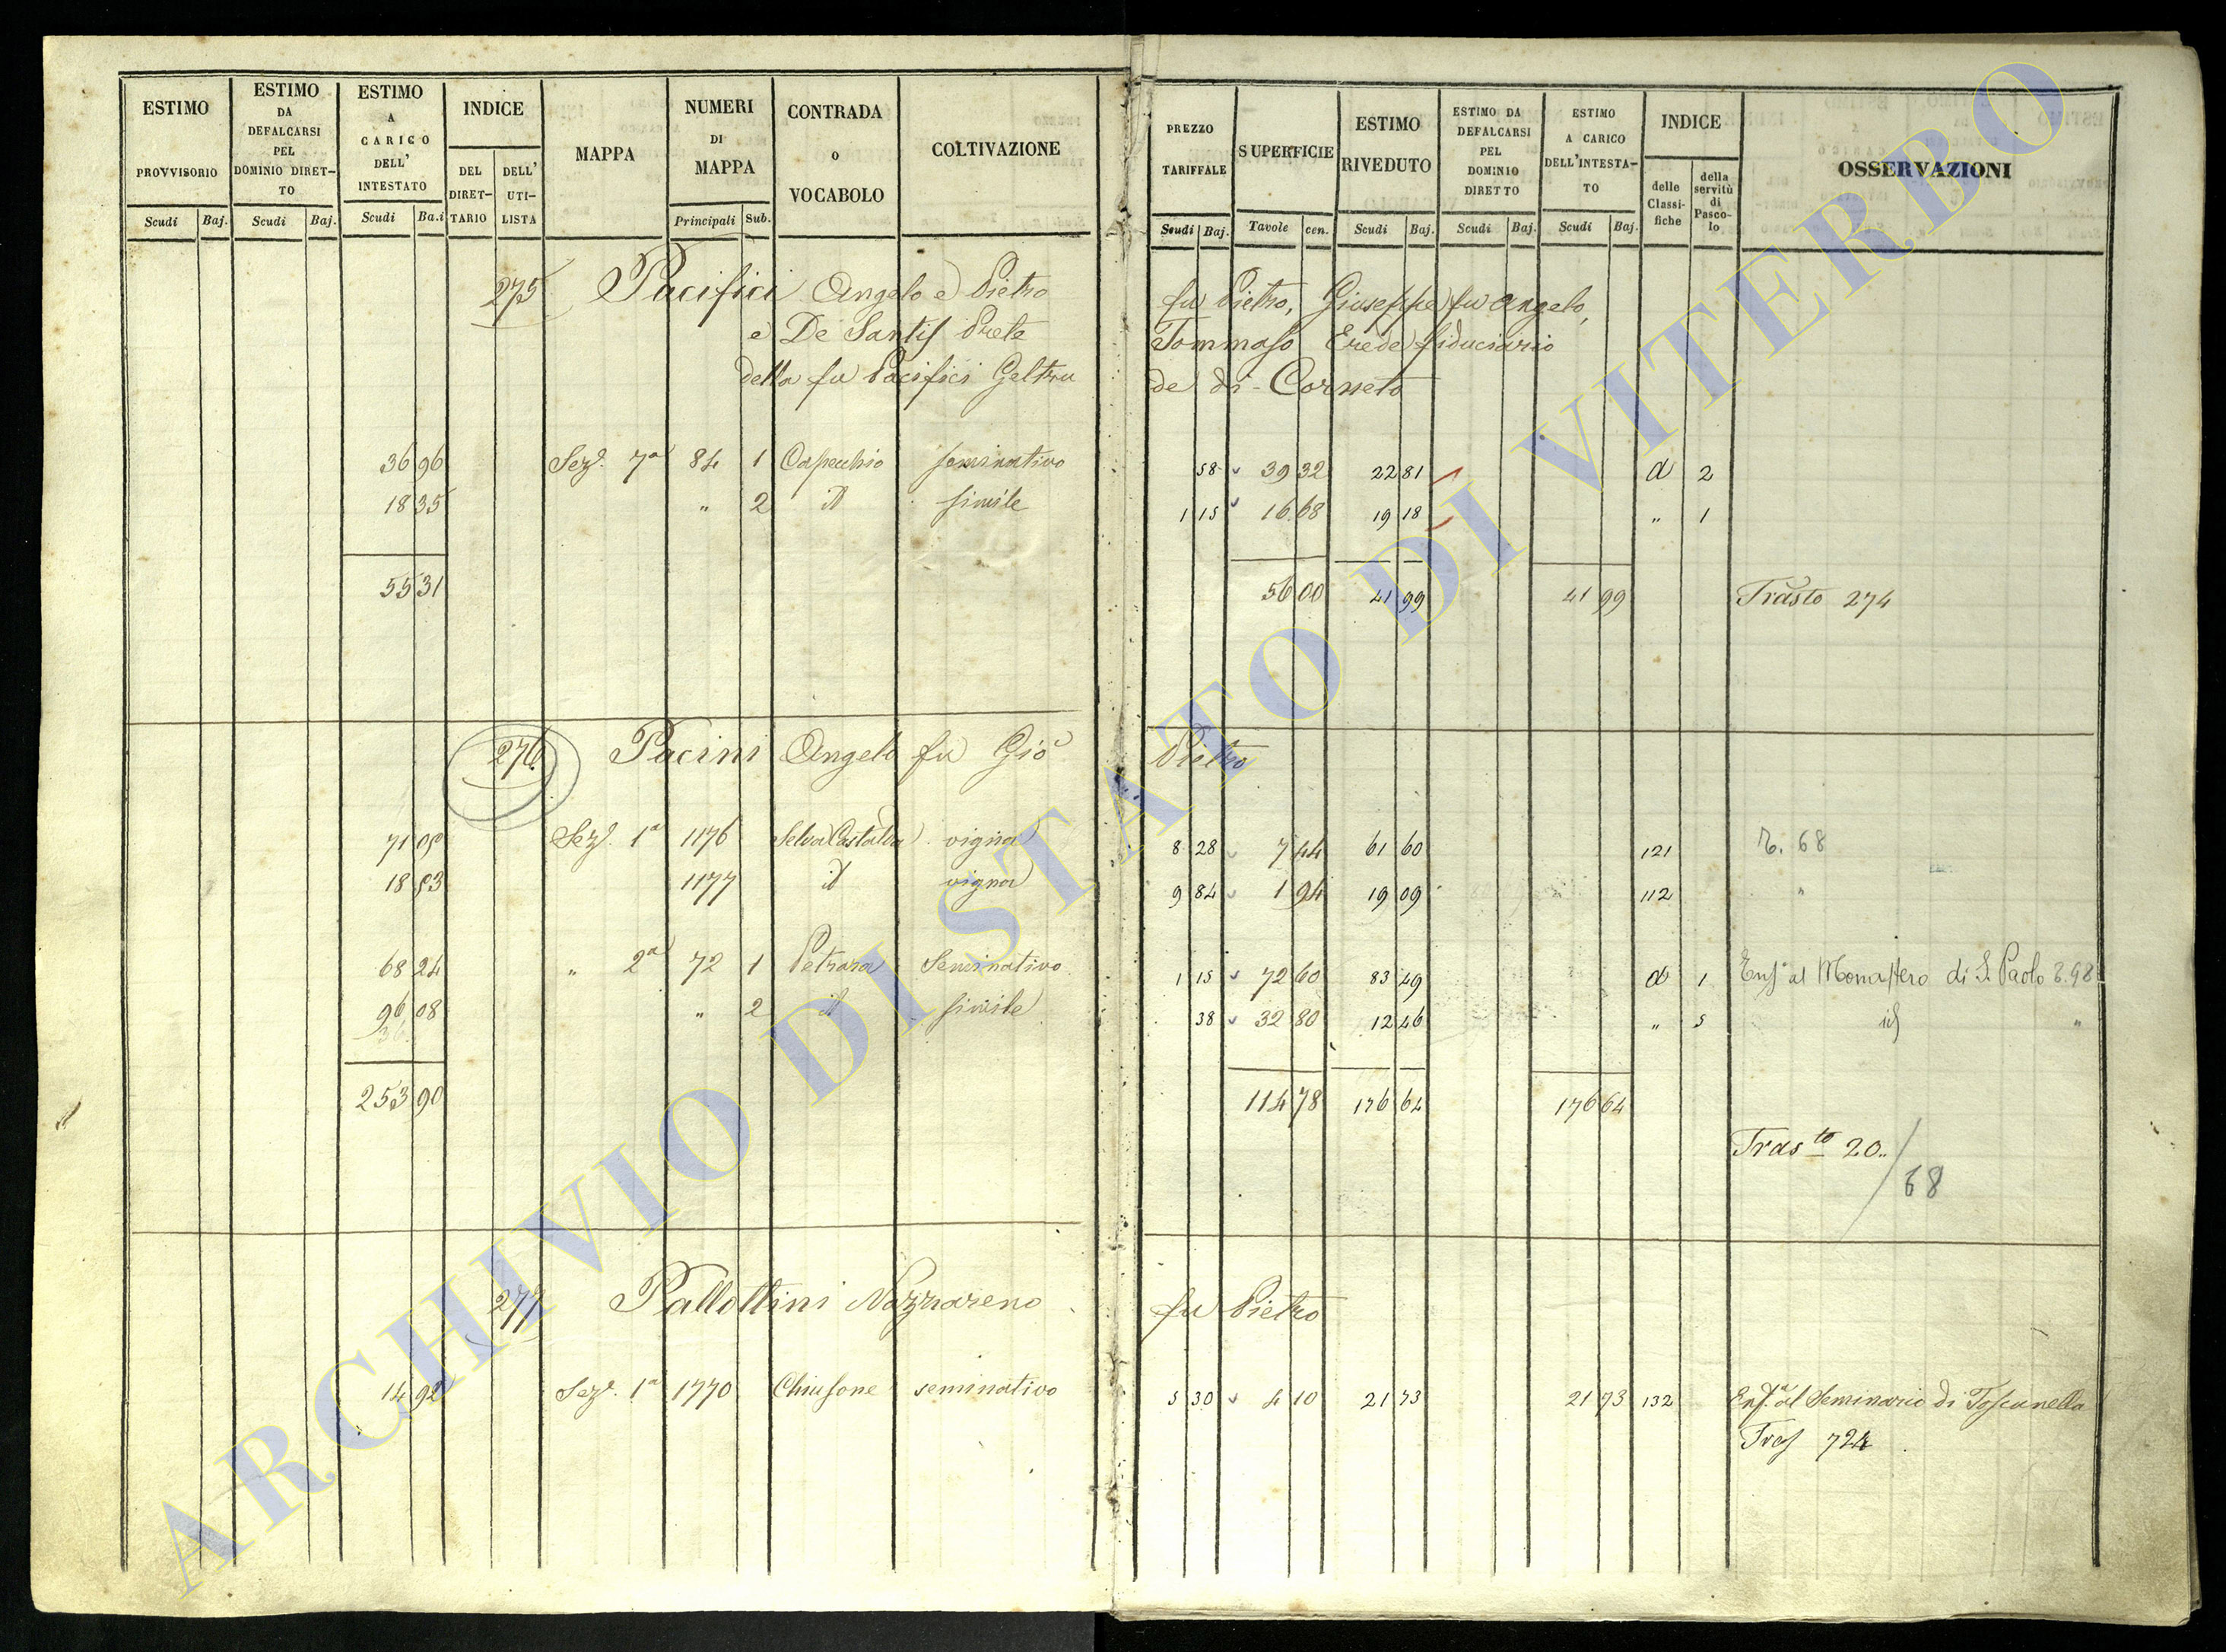 ESTIMO PROVVISORIO Scudi Baj.
ESTIMO DA DEFALCARSI PEL DOMINIO DIRET-TO Scudi Baj.
ESTIMO A CARICO DELL' INTESTATO Scudi Ba.i
INDICE DEL DIRET-TARIO DELL' UTI-LISTA
MAPPA
NUMERI DI MAPPA Principali Sub.
CONTRADA o VOCABOLO
COLTIVAZIONE
PREZZO TARIFFALE Scudi Baj.
SUPERFICIE Tavole cen.
ESTIMO RIVEDUTO Scudi Baj.
ESTIMO DA DEFALCARSI PEL DOMINIO DIRETTO Scudi Baj.
ESTIMO A CARICO DELL'INTESTA-TO Scudi Baj.
INDICE delle Classi-fiche della servitù di Pasco-lo
OSSERVAZIONI
275 Pacifici Angelo e Pietro fu Pietro, Giuseppe fu Angelo,
e De Santis Prete Tommaso Erede fiduciario
della fu Pacifici Geltru de di Corneto
36 96 Sez.e 7a 84 1 Capecchio seminativo 58 39 32 22 81 a 2
18 35 " 2 id simile 1 15 16 68 19 18 " 1
55 31 56 00 41 99 41 99 Trasto 274
276 Pacini Angelo fu Gio Pietro
71 Sez.e 1a 1176 Selva vigna 8 28 7 44 61 60 121 68
18 1177 id vigna 9 84 1 94 19 09 112 "
68 24 " 2a 72 1 Petrara Seminativo 1 15 72 60 83 49 a 1 Enf.a al Monastero di S. Paolo
96 08 " 2 id simile 38 32 80 12 46 " 5 id "
36
253 90 114 78 176 64 176 64
Trasto 20
68
277 Pallottini Nazzareno fu Pietro
14 92 Sez.e 1a 1770 Chiusone seminativo 5 30 4 10 21 73 21 73 132 Enf.a al Seminario di Toscanella
Tras 724
ARCHIVIO DI STATO DI VITERBO